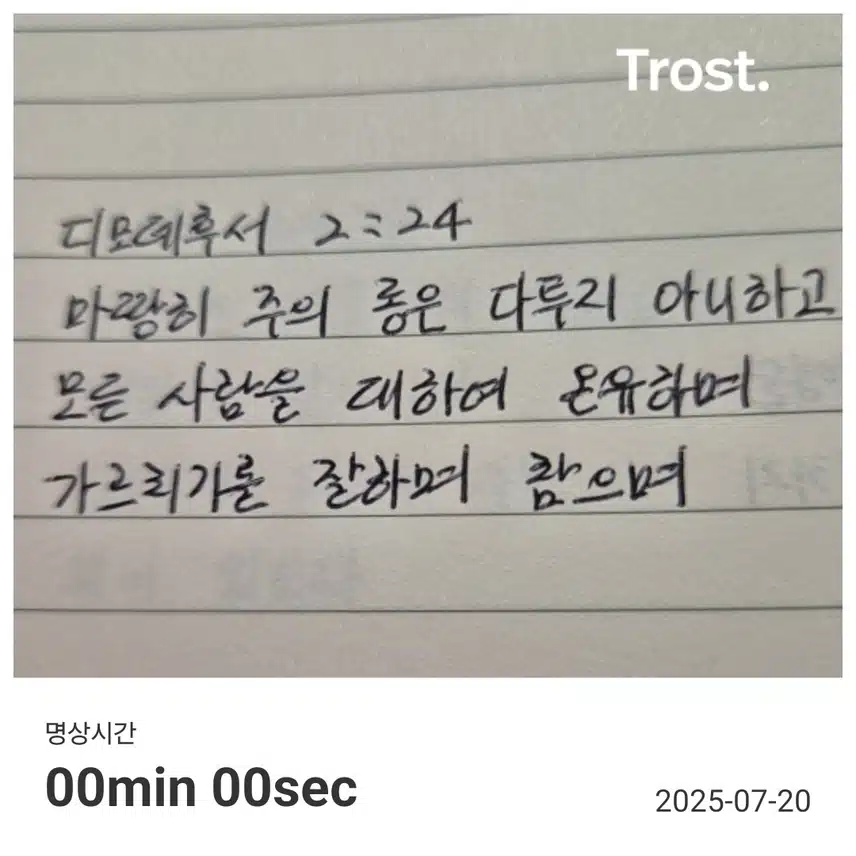 Trost.
디모데후서 2:24
마땅히 주의 종은 다투지 아니하고
모든 사람을 대하여 온유하며
가르치기를 잘하며 참으며
명상시간
00min 00sec
2025-07-20